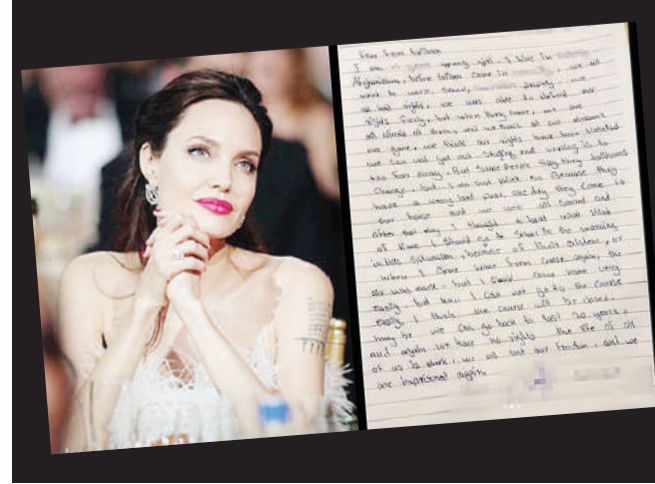 I am young girl. I live in
Afghanistan, before taliban came in we all
went to work, school, we
all had rights, we were able to defend our
rights freely, but when they came, we are
all afraid of them, and we think all our dreams
are gone, we think our rights have been violated
we can not get out studying and working is to
too far away. But some people say they
change, but I do not think so because they
have a past one day they come to
our house and we were all scared and
after that day I thought at what
of time I should go to school in the morning
because of their existence, or
when I come home from course again, the
but I could come home very
easily but now I can not go to the course
easily, I think the course will be closed.
may be we can go back to last 20 years,
and again we have no rights the life of all
of us is dark, we all lost our freedom, and we
are imprisoned again.